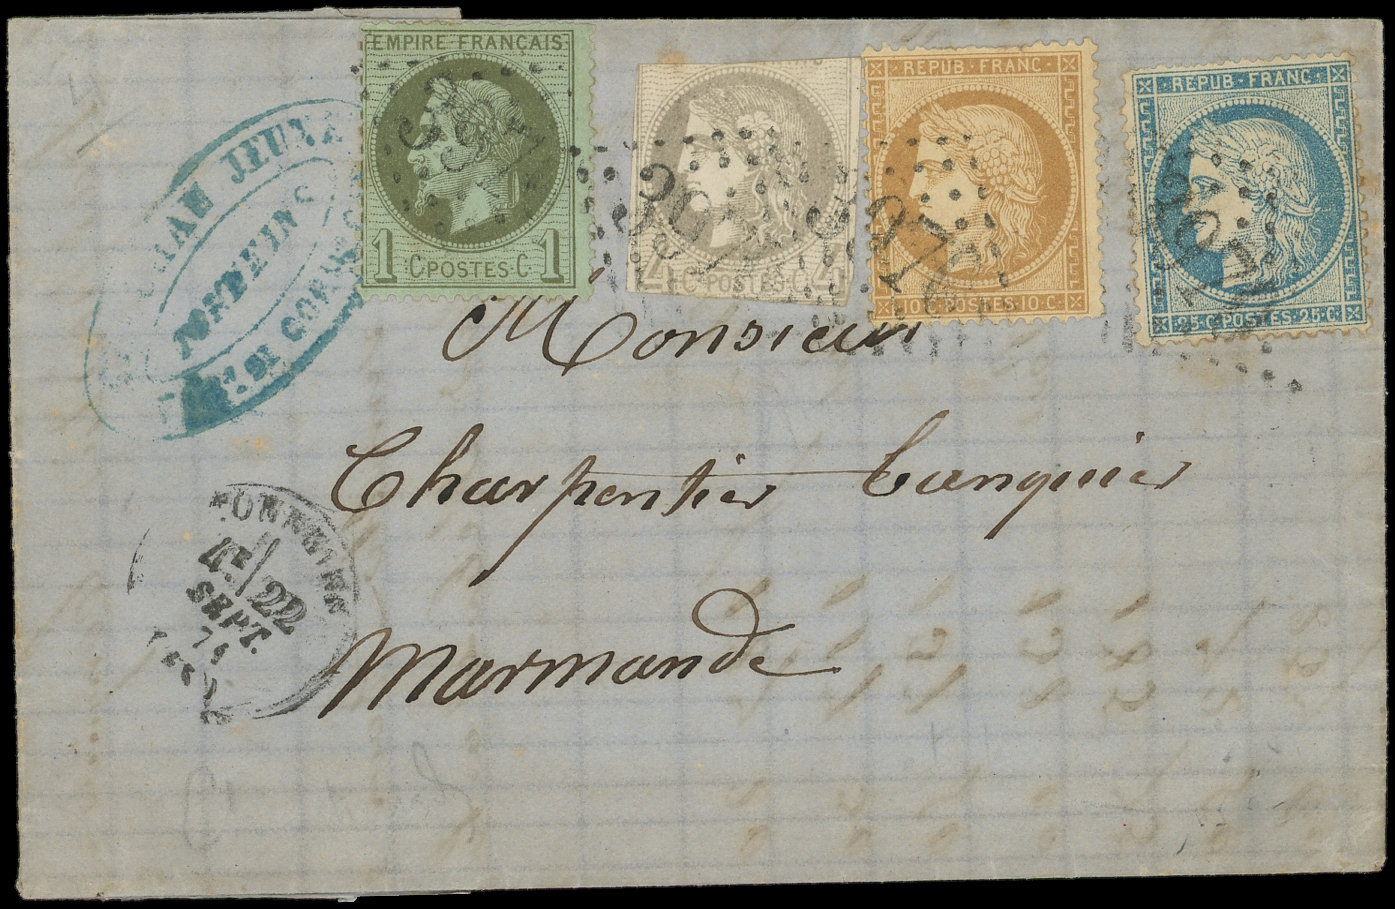 EMPIRE FRANÇAIS
1 C POSTES C 1
4 C 4
REPUB. FRANC.
10 C. POSTES. 10 C.
REPUB. FRANC.
25 C. POSTES. 25 C.
JEUNE
Monsieur
Charpentier banquier
Marmande
4E/22
SEPT.
71